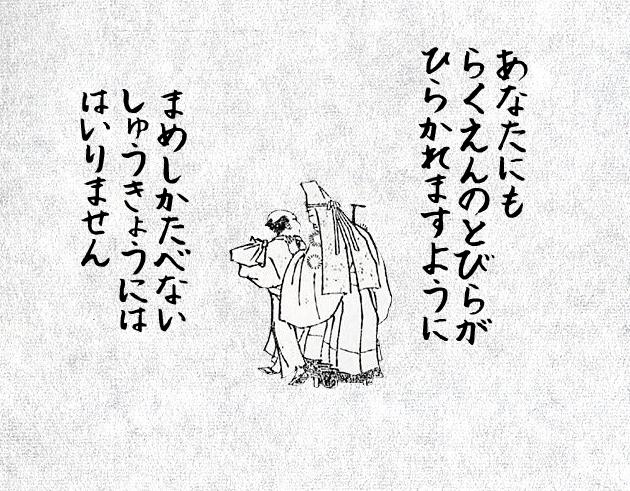 あなたにも
らくえんのとびらが
ひらかれますように
まめしかたべない
しゅうきょうには
はいりません